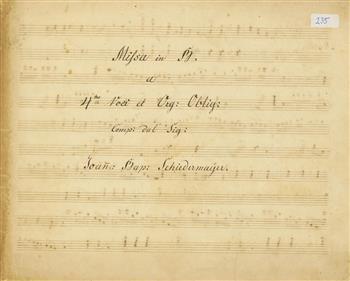 235
Missa in B.
a
4tro Voci et Org: Oblig:
Comp: dal Sig:
Joan: Bap: Schiedermaÿer.